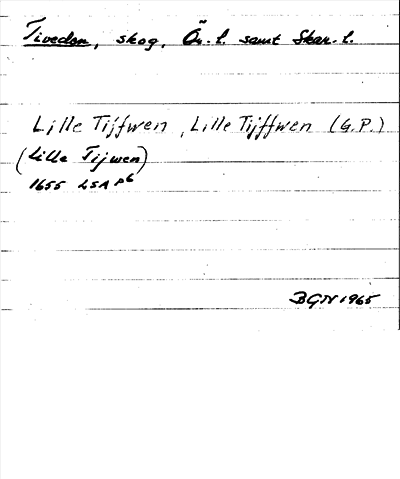 Tiveden, skog, Ör. l. samt Skar. l.
Lille Tijfwen, Lille Tijffwen (G.P.)
(Lille Tijwen)
1655 LSA P6
BGN 1965